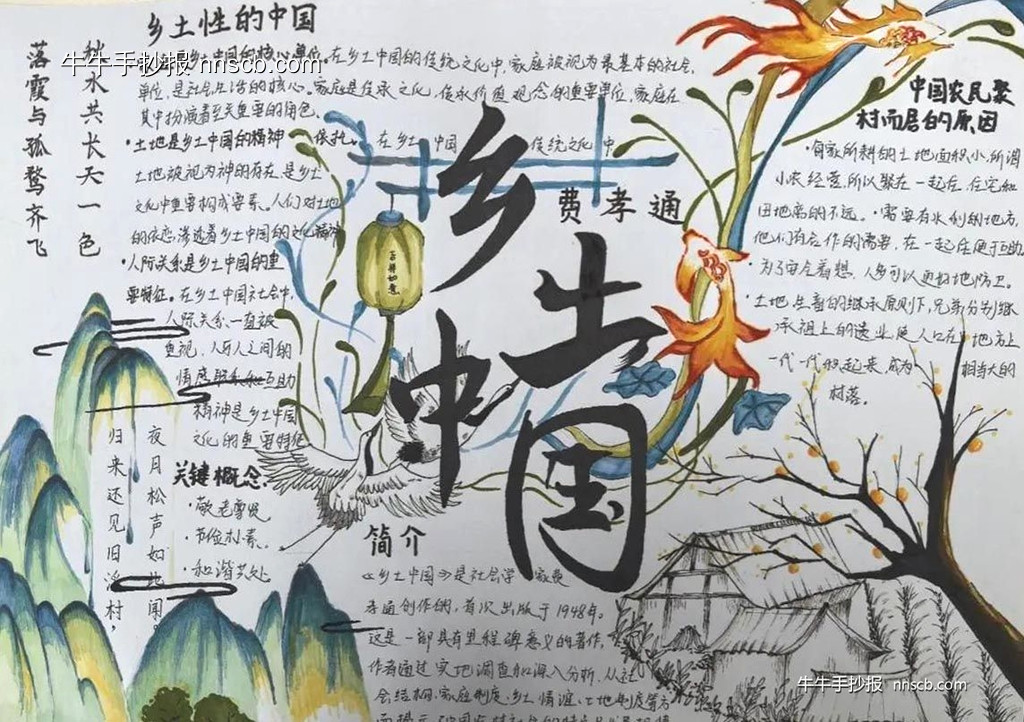 乡土性的中国
落霞与孤鹜齐飞
秋水共长天一色
牛牛手抄报 nhscb.com
乡土中国的核心单位。在乡土中国的传统文化中,家庭被视为最基本的社会
单位,是社会生活的核心。家庭是传承文化、传承价值观念的重要单位,家庭在
其中扮演着至关重要的角色。
·土地是乡土中国的精神依托。在乡土中国传统文化中
土地被视为神的存在,是乡土
文化中重要构成要素。人们对土地
的依恋,渗透着乡土中国的文化精神
·人际关系是乡土中国的重
要特征。在乡土中国社会中,
人际关系一直被
重视,人与人之间的
情感联系和互助
精神是乡土中国
文化的重要特征
关键概念:
·敬老尊贤
·节俭朴素
·和谐共处
夜月松声如地闻。
归来还见旧渔村,
乡土中国
费孝通
吉祥如意
中国农民聚
村而居的原因
·自家所耕的土地面积小,所谓
小农经营,所以聚在一起住,住宅和
田地离的不远。·需要有水利的地方,
他们有合作的需要,在一起住便于互助
·为了安全着想,人多可以更好地防卫。
·土地平等的继承原则下,兄弟分别继
承祖上的遗业,使人口在地方上
一代一代积起来,成为相当大的
村落。
简介
《乡土中国》是社会学家费
孝通创作的,首次出版于1948年。
这是一部具有里程碑意义的著作,
作者通过实地调查和深入分析,从社
会结构、家庭制度、乡土情谊、土地制度等方
牛牛手抄报 nhscb.com